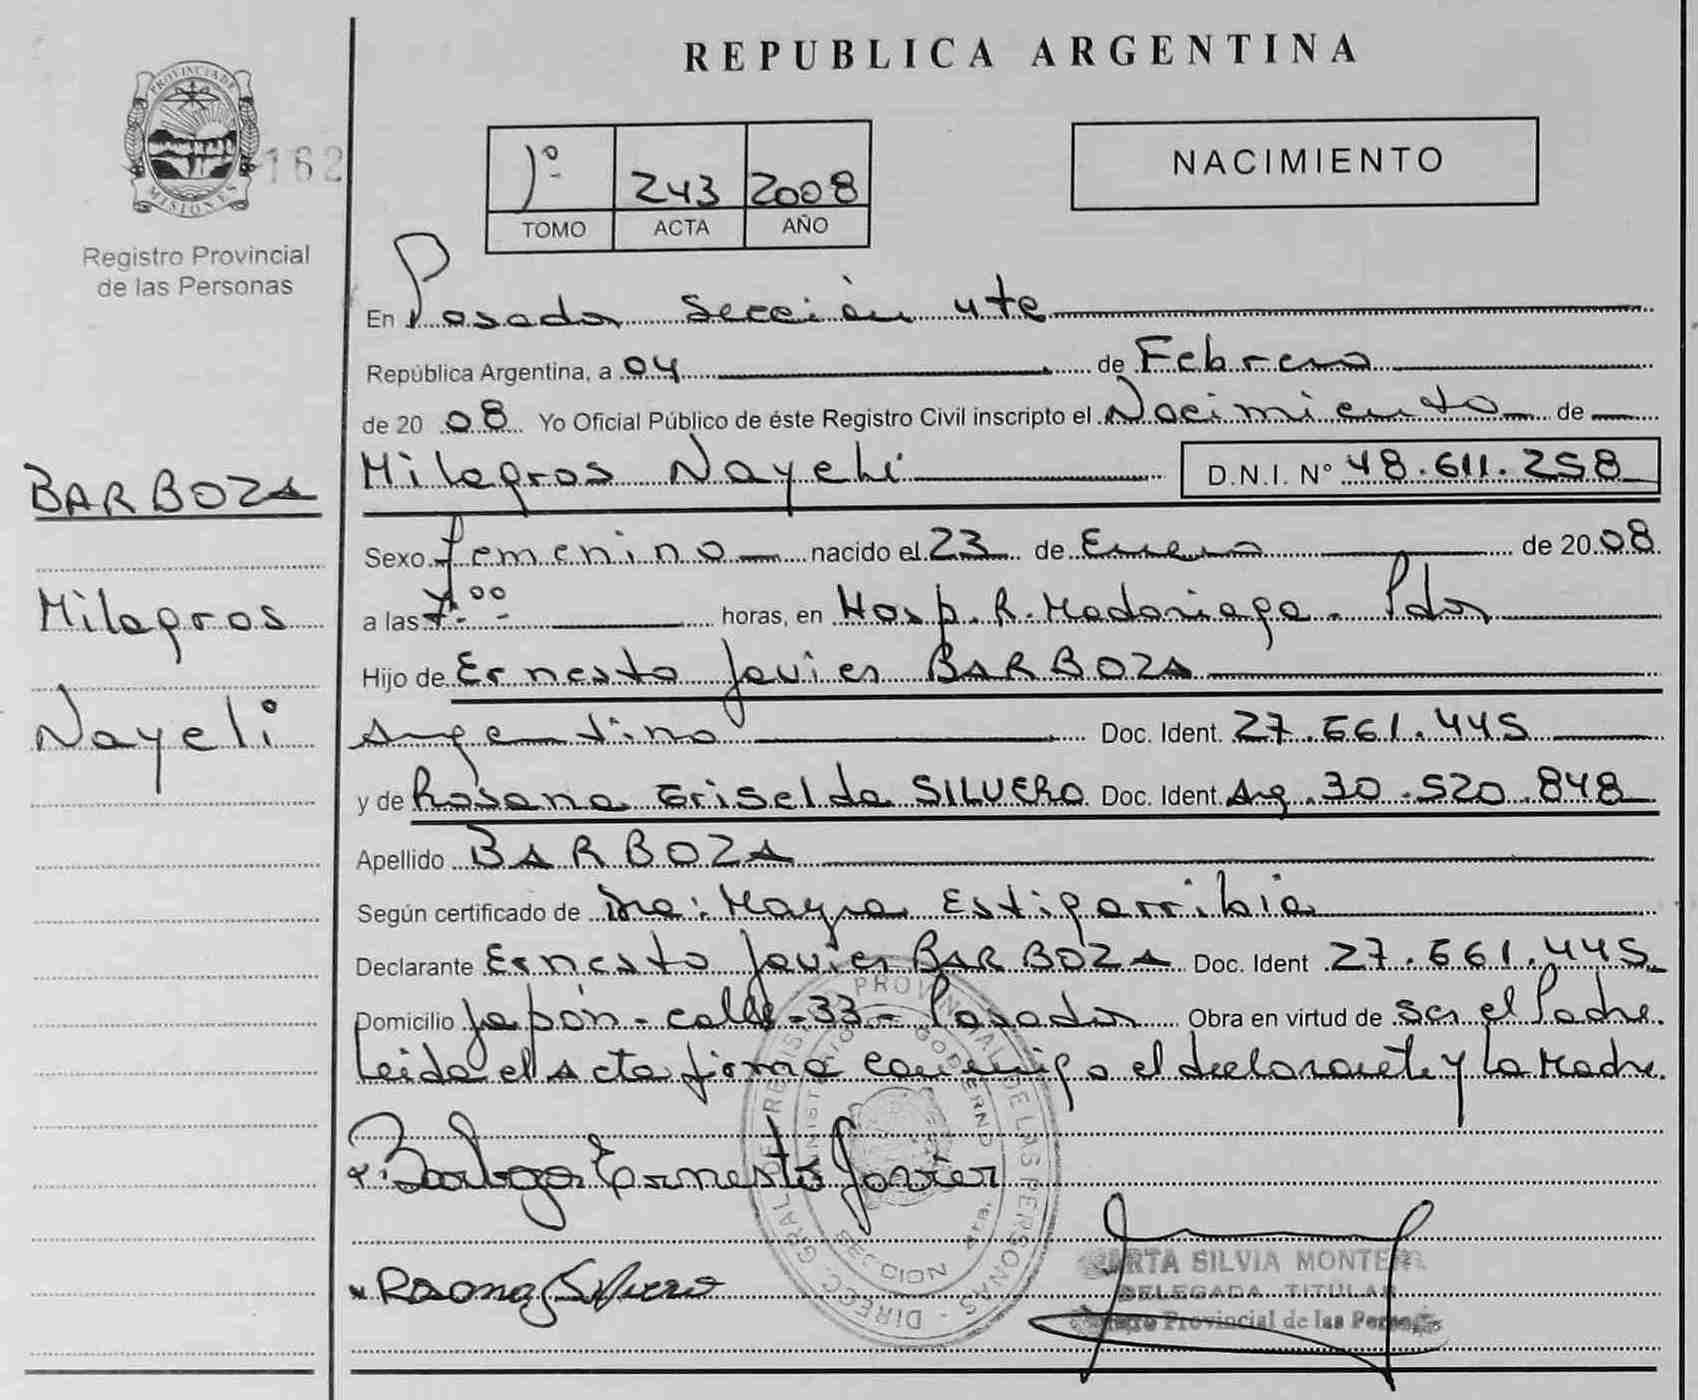 REPUBLICA ARGENTINA
PROVINCIA DE
MISIONES
162
Registro Provincial
de las Personas
1º 243 2008
TOMO ACTA AÑO
NACIMIENTO
En Posadas Sección 4ta
República Argentina, a 04 de Febrero
de 2008 Yo Oficial Público de éste Registro Civil inscripto el Nacimiento de
BARBOZA
Milagros
Nayeli
Milagros Nayeli D.N.I. Nº 48.611.258
Sexo femenino nacido el 23 de Enero de 2008
a las 7.00 horas, en Hosp. R. Madariaga - Pdas
Hijo de Ernesto Javier BARBOZA
Argentino Doc. Ident. 27.661.445
y de Rosana Griselda SILVERO Doc. Ident. Arg. 30.520.848
Apellido BARBOZA
Según certificado de Dra: Mayra Estigarribia
Declarante Ernesto Javier BARBOZA Doc. Ident 27.661.445
Domicilio Japón - calle - 33 - Posadas Obra en virtud de ser el Padre.
Leida el acta firma conmigo el declarante y la Madre.
Barboza Ernesto Javier
Rosana Silvero
DIRECC. GRAL. REGISTRO PROVINCIAL DE LAS PERSONAS
MINISTERIO GOBIERNO
MARTA SILVIA MONTERO
DELEGADA TITULAR
Registro Provincial de las Personas